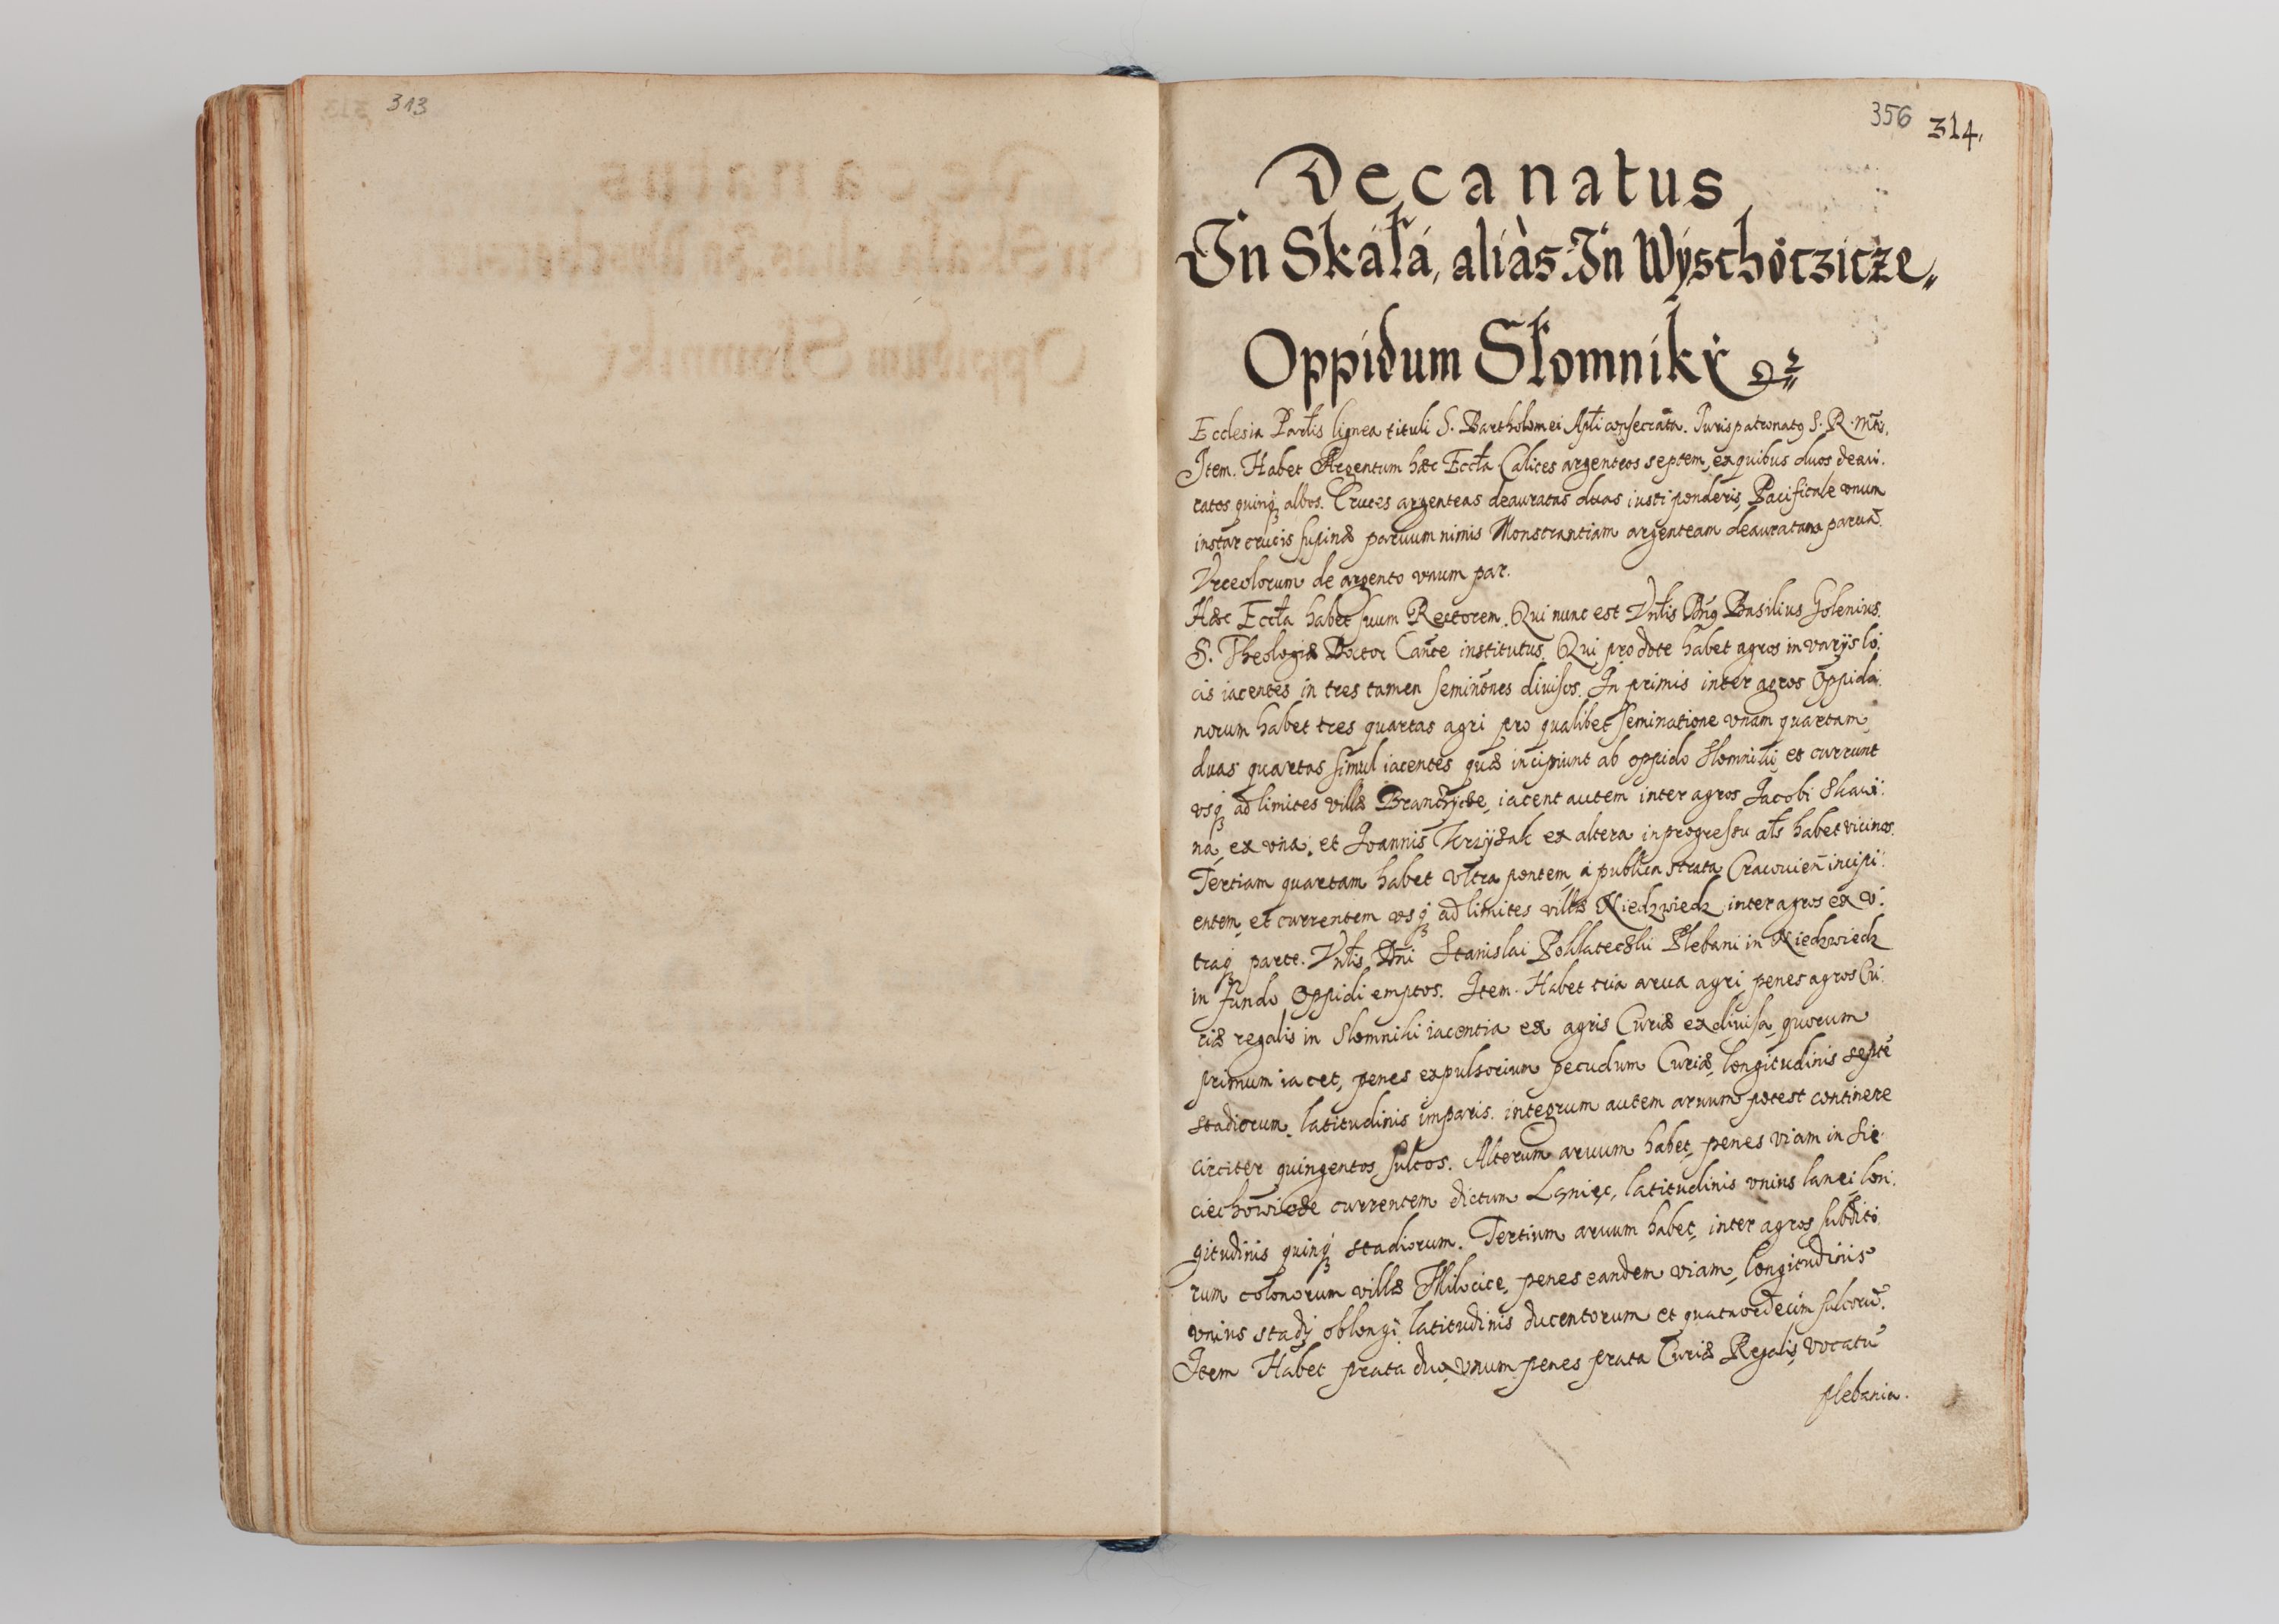 313
356 314.
Decanatus
In Skáłá, aliàs. In Wyschoczicze„
Oppidum Słomniky
Ecclesia Parlis lignea tituli S. Bartholomei Apli consecrata. Iurispatronatq S. R. Mtis.
Item. Habet Argentum hæc Eccla Calices argenteos septem, ex quibus duos deau:
ratos quinq; albos. Cruces argenteas deauratas duas iusti ponderis, Pacificale vnum
instar crucis supinæ paruum nimis Monstrantiam argenteam deauratam paruã.
Vrceolorum de argento vnum par.
Hæc Eccla habet suum Rectorem. Qui nunc est Vnlis Dnq Basilius Golenius.
S. Theologiæ Doctor Cance institutus. Qui pro dote habet agros in varijs lo:
cis iacentes in tres tamen seminōnes diuisos. In primis inter agros Oppida:
norum habet tres quartas agri pro qualibet seminatione vnam quartam,
duas quartas simul iacentes quæ incipiunt ab oppido Slomniki et currunt
vsq; ad limites villæ Branczycze, iacent autem inter agros Jacobi Skawi:
na, ex vna, et Joannis Krzyżak ex altera in progressu als habet vicinos.
Tertiam quartam habet vltra pontem, a publica strata Cracouieñ incipi:
entem, et currentem vsq; ad limites villæ Niedzwiedz inter agros ex v:
traq; parte. Vnlis Dni Stanislai Poklatecski Plebani in Niedzwiedz
in fundo Oppidi emptos. Item. Habet tria arua agri penes agros Cu:
riæ regalis in Slomniki iacentia ex agris Curiæ exdiuisa, quorum
primum iacet, penes expulsorium pecudum Curiæ, longitudinis septẽ
stadiorum, latitudinis imparis. integrum autem aruum potest continere
circiter quingentos sulcos. Alterum aruum habet, penes viam in Sie:
ciechowicze currentem dictum Łąniec, latitudinis vnius lanei lon:
gitudinis quinq; stadiorum. Tertium aruum habet, inter agros subdito:
rum colonorum villæ Milocice, penes eandem viam, longitudinis
vnius stadij oblongi, latitudinis ducentorum et quatuordecim sulcorũ.
Item Habet prata duo, vnum penes prata Curiæ Regalis, vocatũ
plebania.